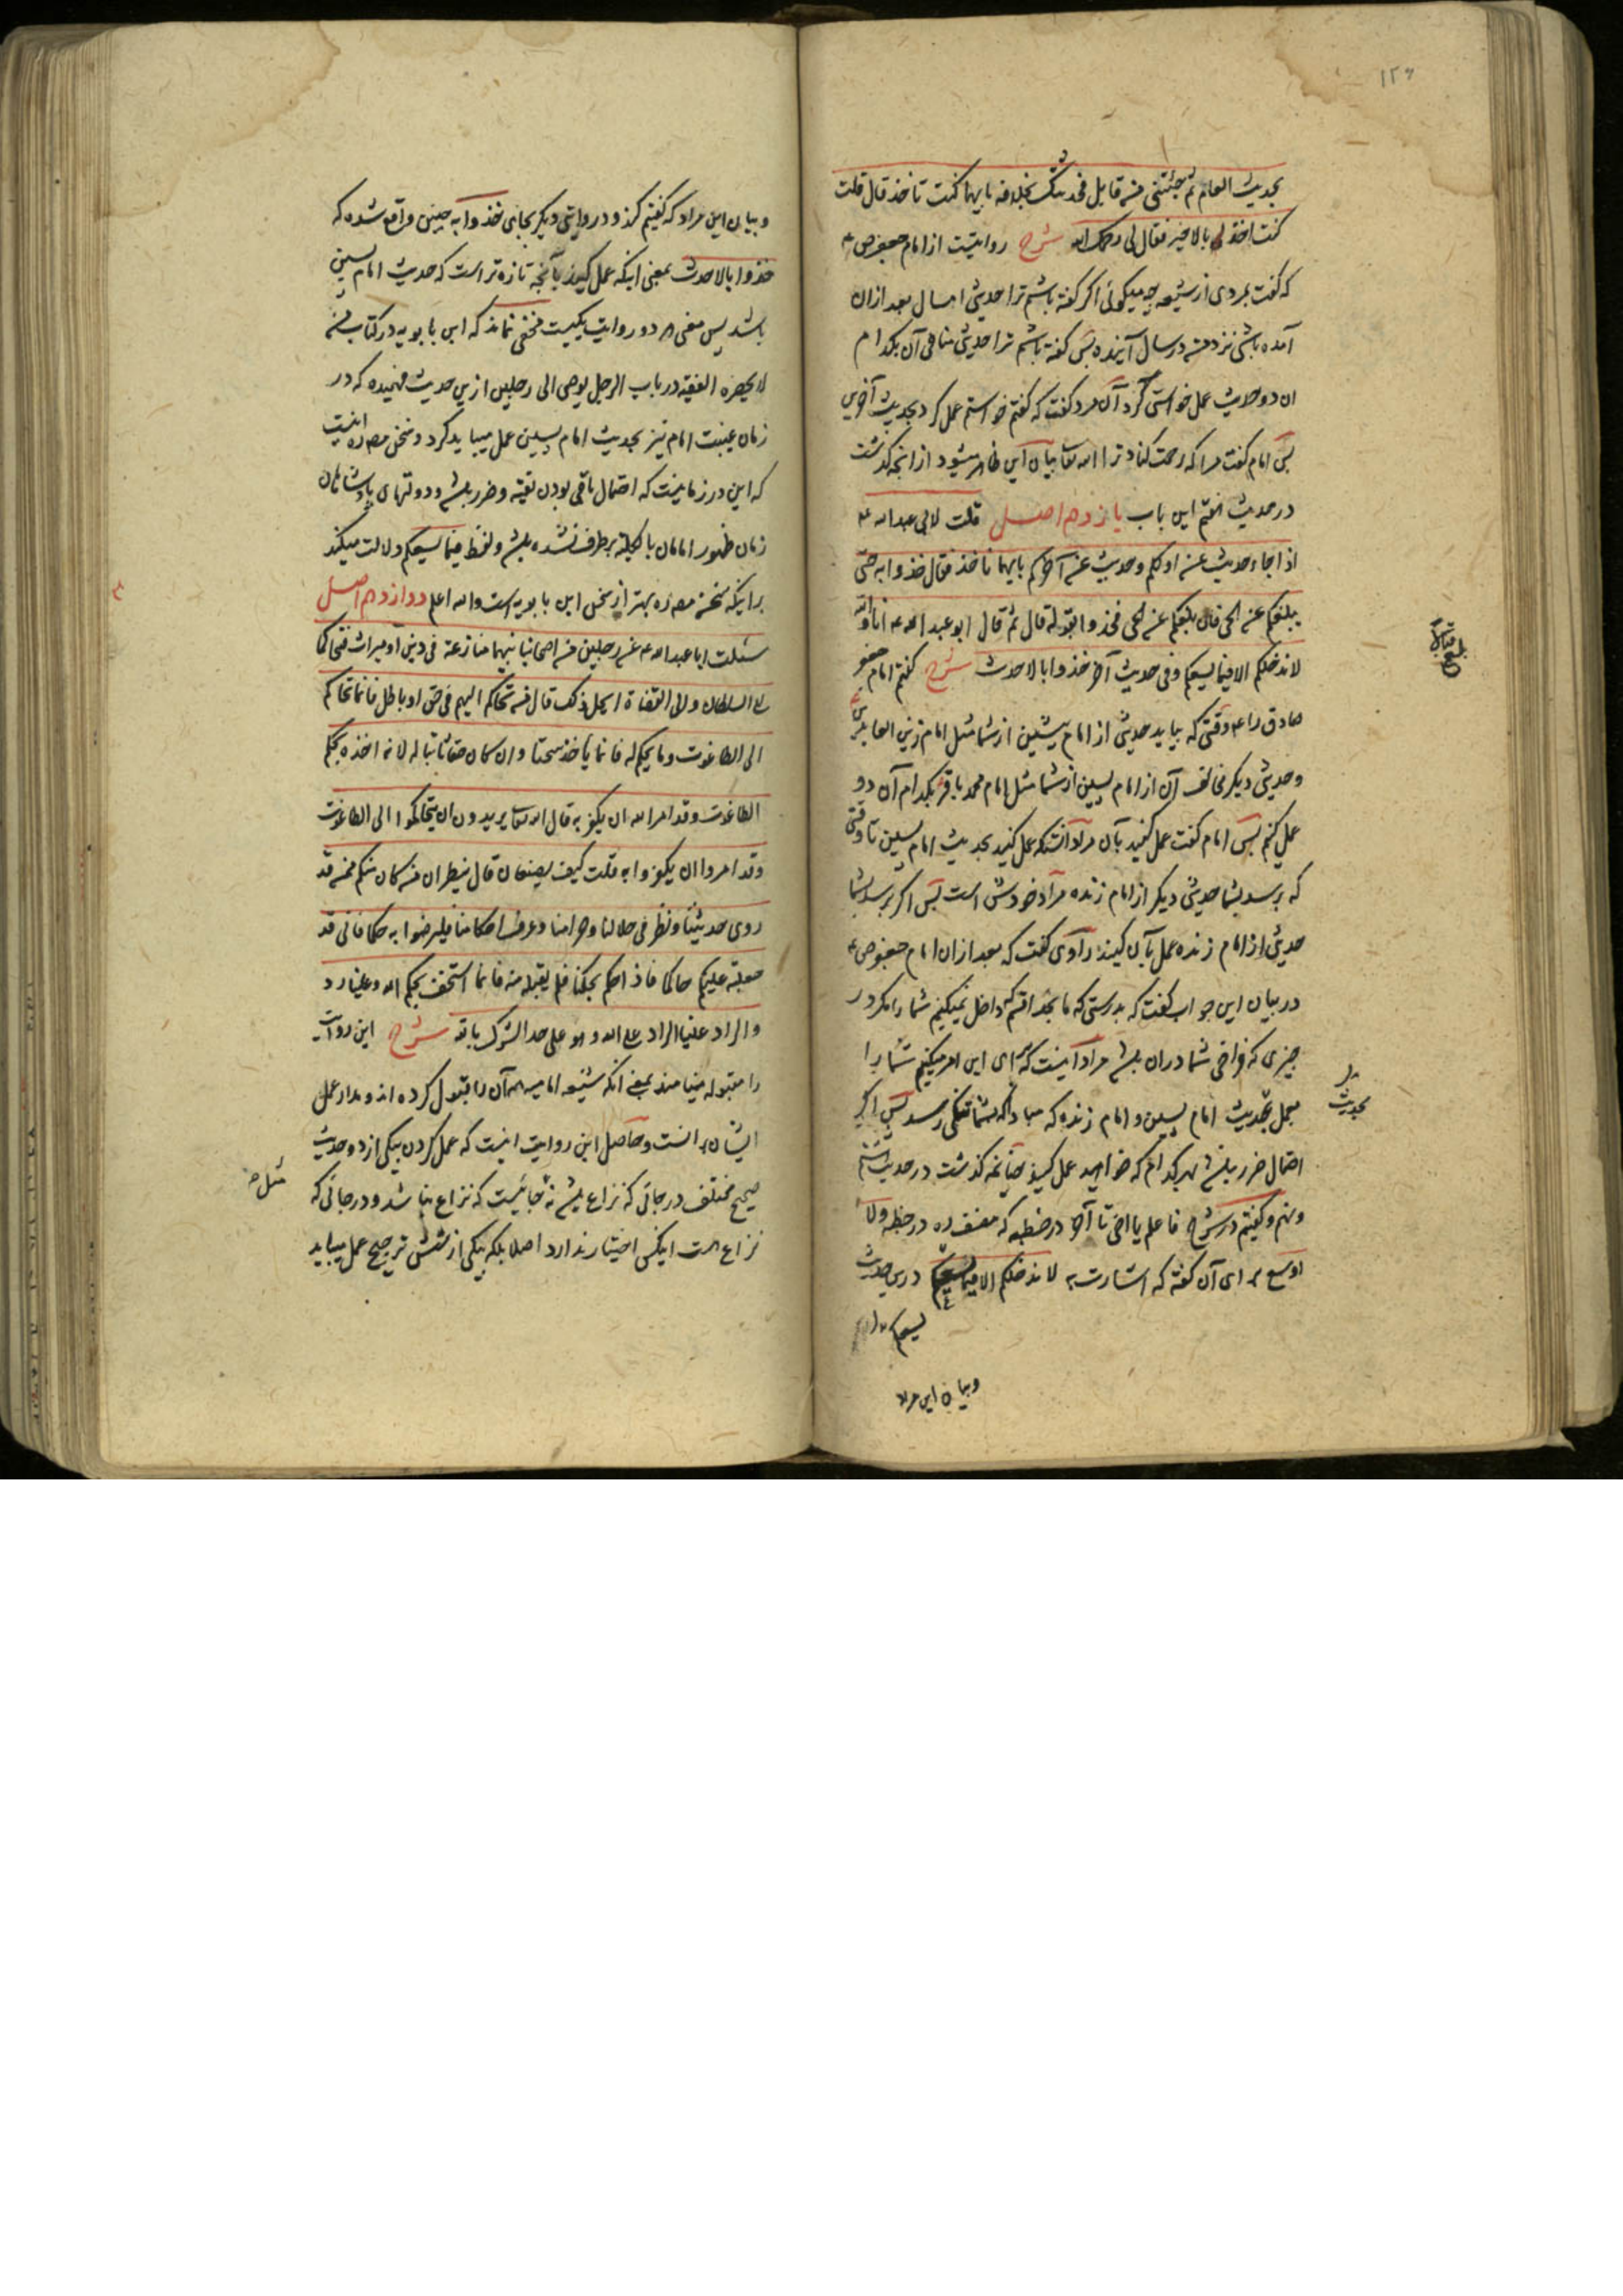 ۱۲۶
بحدیث العام ثم جئتنی من قابل فحدثتک بخلافه بایهما کنت تاخذ قال قلت
کنت اخذ بالاخیر فقال لی رحمک الله شرح روایتست از امام جعفر ص ع
که گفت بمردی از شیعه چه میکوئی اکر گفته باشم ترا حدیثی امسال بعد ازان
آمده باشی نزد من در سال آینده پس گفته باشم ترا حدیثی منافی آن بکدام
ان دو حدیث عمل خواستی کرد آن مرد گفت که گفتم خواستم عمل کرد بحدیث آخرین
پس امام گفت مرا که رحمت کناد ترا الله تعا بیان این ظاهر میشود از انچه گذشت
در حدیث هفتم این باب یازدهم اصل قلت لابی عبدالله ع
اذا جاء حدیث عن اولکم وحدیث عن آخرکم بایهما ناخذ فقال خذوا به حتی
یبلغکم عن الحی فان بلغکم عن الحی فخذوا بقوله قال ثم قال ابو عبدالله ع انا والله
لا ندخلکم الا فیما یسعکم وفی حدیث آخر خذوا بالاحدث شرح گفتم امام جعفر
صادق را ع وقتی که بیاید حدیثی از امام پیشین از شما مثل امام زین العابدین
وحدیثی دیکر مخالف آن از امام پسین از شما مثل امام محمد باقر بکدام آن دو
عمل کنم پس امام گفت عمل کنید بآن مراد آنست که عمل کنید بحدیث امام پسین تا وقتی
که برسد بشما حدیثی دیکر از امام زنده مراد خودش است پس اکر برسد بشما
حدیثی از امام زنده عمل بآن کنید راوی گفت که بعد ازان امام جعفر ص ع
در بیان این جواب گفت که بدرستی که ما بخدا قسم که داخل نمیکنیم شما را مکر در
چیزی که فراخی شما دران باشد مراد اینست که برای این امر میکنیم شما را
بعمل بحدیث امام پسین و امام زنده که مبادا که بشما تنکی رسد پس اکر
احتمال ضرر باشد بهر کدام که خواهید عمل کنید چنانچه گذشت در حدیث هشتم
ونهم وگفتیم در شرح فاعلم یا اخی تا آخر در خطبه که مصنف ره در خطبه ولا
اوسع برای آن گفته که اشارت به لا ندخلکم الا فیما یسعکم درین حدیث
یسعکم
وبیان این مراد
بلغ قبالا
بحدیث
وبیان این مراد که گفتیم کند و در روایتی دیکر بجای خذوا به چنین واقع شده که
خذوا بالاحدث بمعنی اینکه عمل کنید بآنچه تازه تر است که حدیث امام پسین
باشد پس معنی هر دو روایت یکیست مخفی نماند که ابن بابویه در کتاب من
لا یحضره الفقیه در باب الرجل یوصی الی رجلین ازین حدیث فهمیده که در
زمان غیبت امام نیز بحدیث امام پسین عمل میباید کرد وسخن مص ره اینست
که این در زمانیست که احتمال باقی بودن تقیه وضرر باشد ودولتهای پادشاهان
زمان ظهور امامان بالکلیه برطرف نشده باشد ولفظ فیما یسعکم دلالت میکند
براینکه سخن مص ره بهتر از سخن ابن بابویه است والله اعلم دوازدهم اصل
سئلت ابا عبدالله ع عن رجلین من اصحابنا بینهما منازعة فی دین او میراث فتحاکما
الی السلطان والی القضاة ایحل ذلک قال من تحاکم الیهم فی حق او باطل فانما تحاکم
الی الطاغوت وما یحکم له فانما یاخذ سحتا وان کان حقا ثابتا له لانه اخذه بحکم
الطاغوت وقد امر الله ان یکفر به قال الله تعا یریدون ان یتحاکموا الی الطاغوت
وقد امروا ان یکفروا به قلت کیف یصنعان قال ینظران من کان منکم ممن قد
روی حدیثنا ونظر فی حلالنا وحرامنا وعرف احکامنا فلیرضوا به حکما فانی قد
جعلته علیکم حاکما فاذا حکم بحکمنا فلم یقبله منه فانما استخف بحکم الله وعلینا رد
والراد علینا الراد علی الله وهو علی حد الشرک بالله شرح این روایت
را مقبوله مینامند بمعنی انکه شیعه امامیه همه آن را قبول کرده اند ومدار عمل
ایشان برانست وحاصل این روایت اینست که عمل کردن بیکی از دو حدیث
صحیح مختلف در جائی که نزاع باشد نه جائیست که نزاع نباشد ودر جائی که
نزاع هست ایکس اختیار ندارد اصلا بلکه بیکی از شش ترجیح عمل میباید
مثل